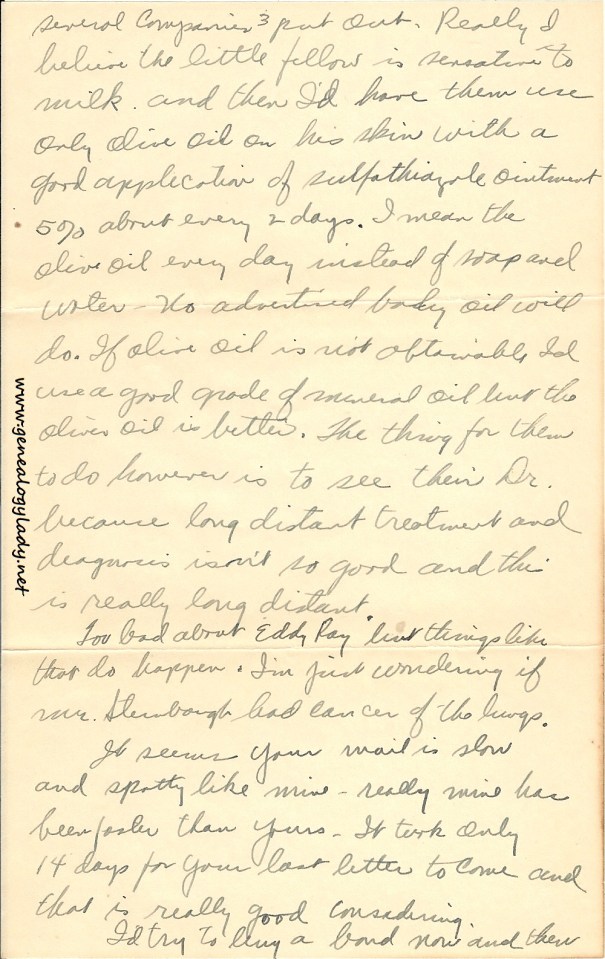 several Companies 3 put out. Really I
believe the little fellow is sensative to
milk. and then I'd have them use
only olive oil on his skin with a
good application of sulfathiazole ointment
5% about every 2 days. I mean the
olive oil every day instead of soap and
water - No advertised body oil will
do. If olive oil is not obtainable I'd
use a good grade of mineral oil but the
olive oil is better. The thing for them
to do however is to see their Dr.
because long distant treatment and
diagnosis isn't so good and this
is really long distant.
Too bad about "Eddy Ray" but things like
that do happen. I'm just wondering if
mr. Stembaugh had cancer of the lungs.
It seems your mail is slow
and spotty like mine - really mine has
been faster than yours - It took only
14 days for your last letter to come and
that is really good considering.
I'd try to buy a bond now and then
www.genealogylady.net